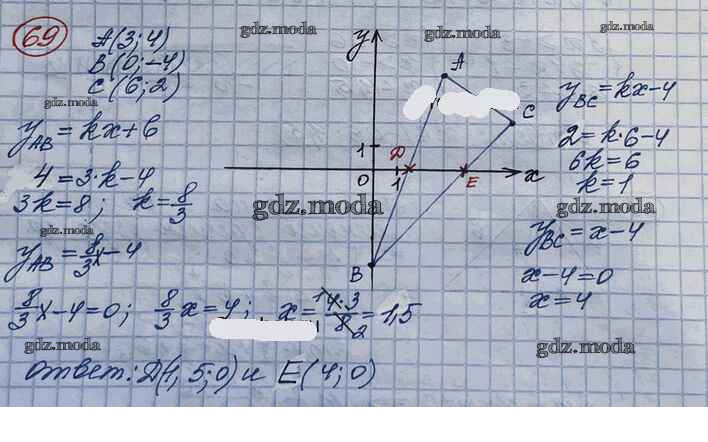 69
A(3;4)
B(0;-4)
C(6;2)
y_AB = kx+b
4=3·k-4
3k=8; k=8/3
y_AB=8/3x-4
8/3x-4=0; 8/3x=4; x=4·3/8=1,5
1 2
ответ: D(1,5;0) и E(4;0)
y
A
C
1
D
0
1
E
x
B
y_BC=kx-4
2=k·6-4
6k=6
k=1
y_BC=x-4
x-4=0
x=4
gdz.moda
gdz.moda
gdz.moda
gdz.moda
gdz.moda
gdz.moda
gdz.moda
gdz.moda
gdz.moda
gdz.moda